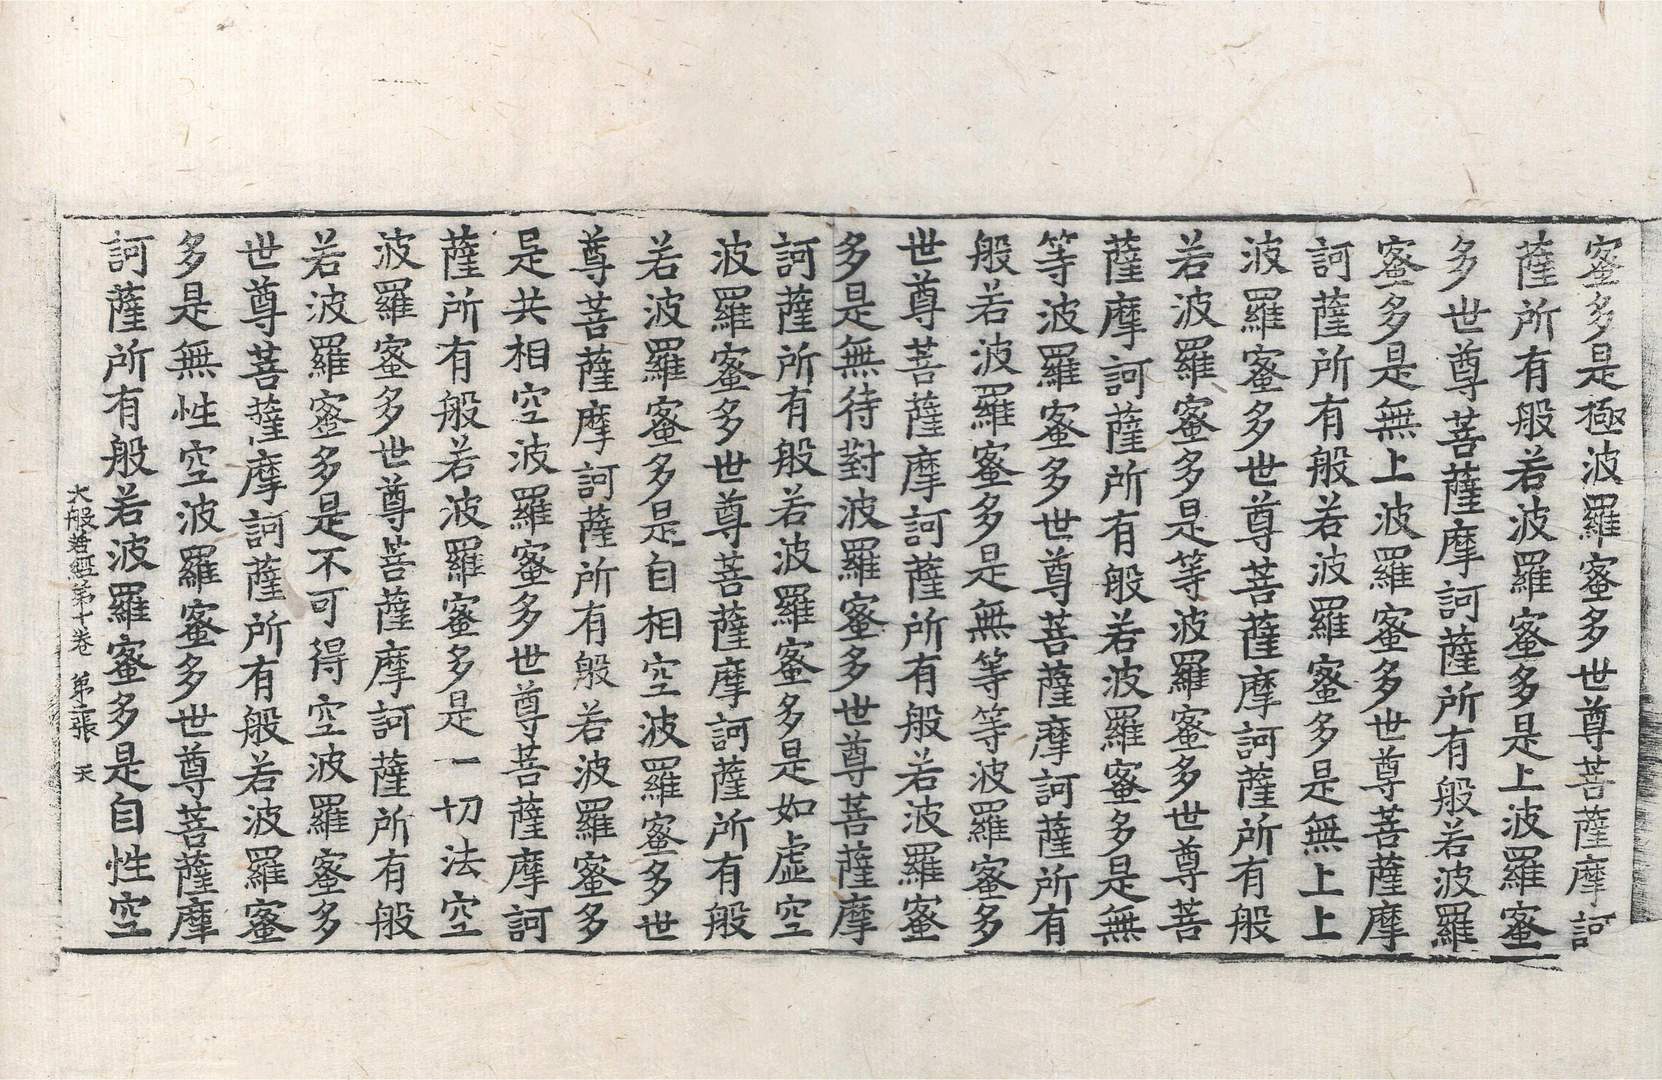 蜜多是極波羅蜜多世尊菩薩摩訶
薩所有般若波羅蜜多是上波羅蜜
多世尊菩薩摩訶薩所有般若波羅
蜜多是無上波羅蜜多世尊菩薩摩
訶薩所有般若波羅蜜多是無上上
波羅蜜多世尊菩薩摩訶薩所有般
若波羅蜜多是等波羅蜜多世尊菩
薩摩訶薩所有般若波羅蜜多是無
等波羅蜜多世尊菩薩摩訶薩所有
般若波羅蜜多是無等等波羅蜜多
世尊菩薩摩訶薩所有般若波羅蜜
多是無待對波羅蜜多世尊菩薩摩
訶薩所有般若波羅蜜多是如虛空
波羅蜜多世尊菩薩摩訶薩所有般
若波羅蜜多是自相空波羅蜜多世
尊菩薩摩訶薩所有般若波羅蜜多
是共相空波羅蜜多世尊菩薩摩訶
薩所有般若波羅蜜多是一切法空
波羅蜜多世尊菩薩摩訶薩所有般
若波羅蜜多是不可得空波羅蜜多
世尊菩薩摩訶薩所有般若波羅蜜
多是無性空波羅蜜多世尊菩薩摩
訶薩所有般若波羅蜜多是自性空
大般若經第十卷 第二張 天